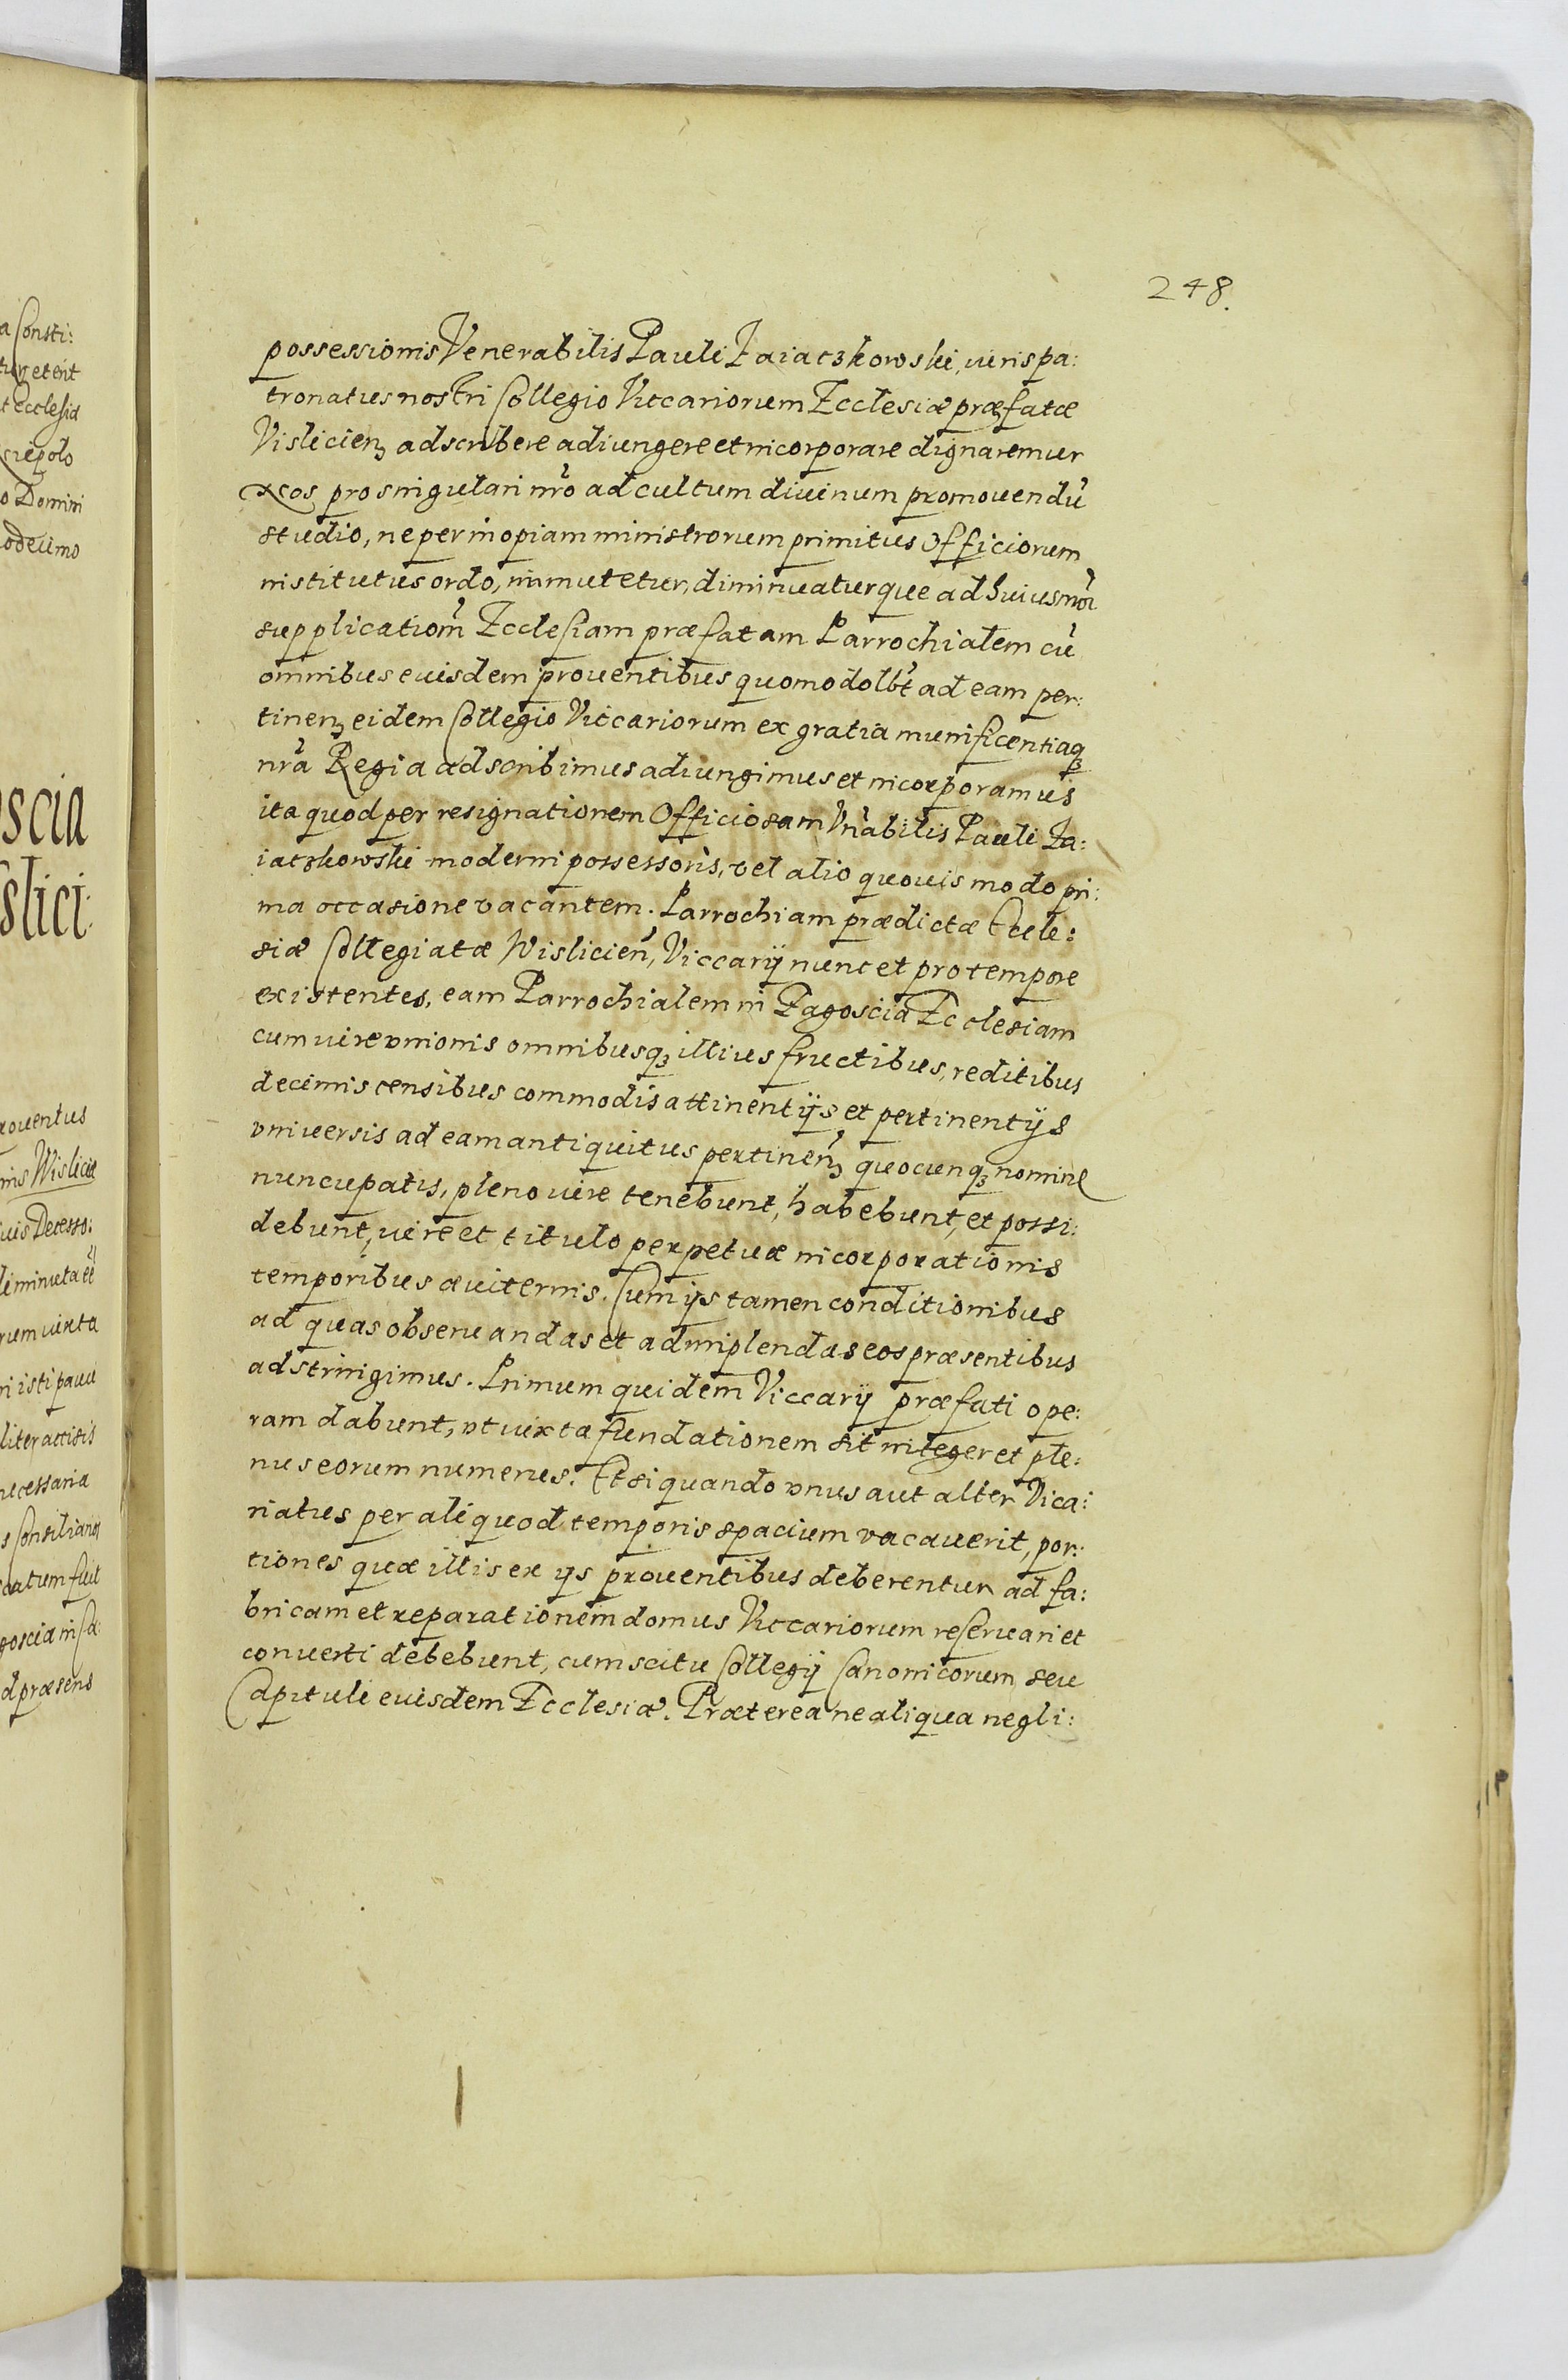 248.
possessionis Venerabilis Pauli Zaiaczkowski, iuris pa:
tronatus nostri Collegio Viccariorum Ecclesiæ præfatæ
Vislicienꝫ adscribere adiungere et incorporare dignaremur
Nos pro singulari nr̃o ad cultum diuinum promouendũ
studio, ne per inopiam ministrorum primitus Officiorum
institutus ordo, immutetur, diminuaturque ad huiusmõi
supplicationẽ Ecclesiam præfatam Parrochialem cũ
omnibus eiusdem prouentibus quomodolbt̃ ad eam per:
tinenꝫ eidem Collegio Viccariorum ex gratia munificentiaqꝫ
nr̃a Regia adscribimus adiungimus et incorporamus
ita quod per resignationem Officiosam Vnãbilis Pauli Za:
iaczkowski moderni possessoris, vel alio quouis modo pri:
ma occasione vacantem. Parrochiam prædictæ Eccle:
siæ Collegiatæ Wislicien̄, Viccarij nunc et pro tempore
existentes, eam Parrochialem in Zagoscia Ecclesiam
cum iure vnionis omnibusqꝫ illius fructibus, reditibus
decimis censibus commodis attinentijs et pertinentijs
vniuersis ad eam antiquitus pertinen̄ꝫ quocunqꝫ nomine
nuncupatis, pleno iure tenebunt, habebunt, et possi:
debunt, iure et titulo perpetuæ incorporationis
temporibus æuiternis. Cum ijs tamen conditionibus
ad quas obseruandas et adimplendas eos præsentibus
adstringimus. Primum quidem Viccarij præfati ope:
ram dabunt, vt iuxta fundationem sit integer et ple:
nus eorum numerus. Et si quando vnus aut alter Vica:
riatus per aliquod temporis spacium vacauerit, por:
tiones quæ illis ex ijs prouentibus deberentur ad fa:
bricam et reparationem domus Viccariorum reseruari et
conuerti debebunt, cum scitu Collegij Canonicorum seu
Capituli eiusdem Ecclesiæ. Præterea ne aliqua negli: